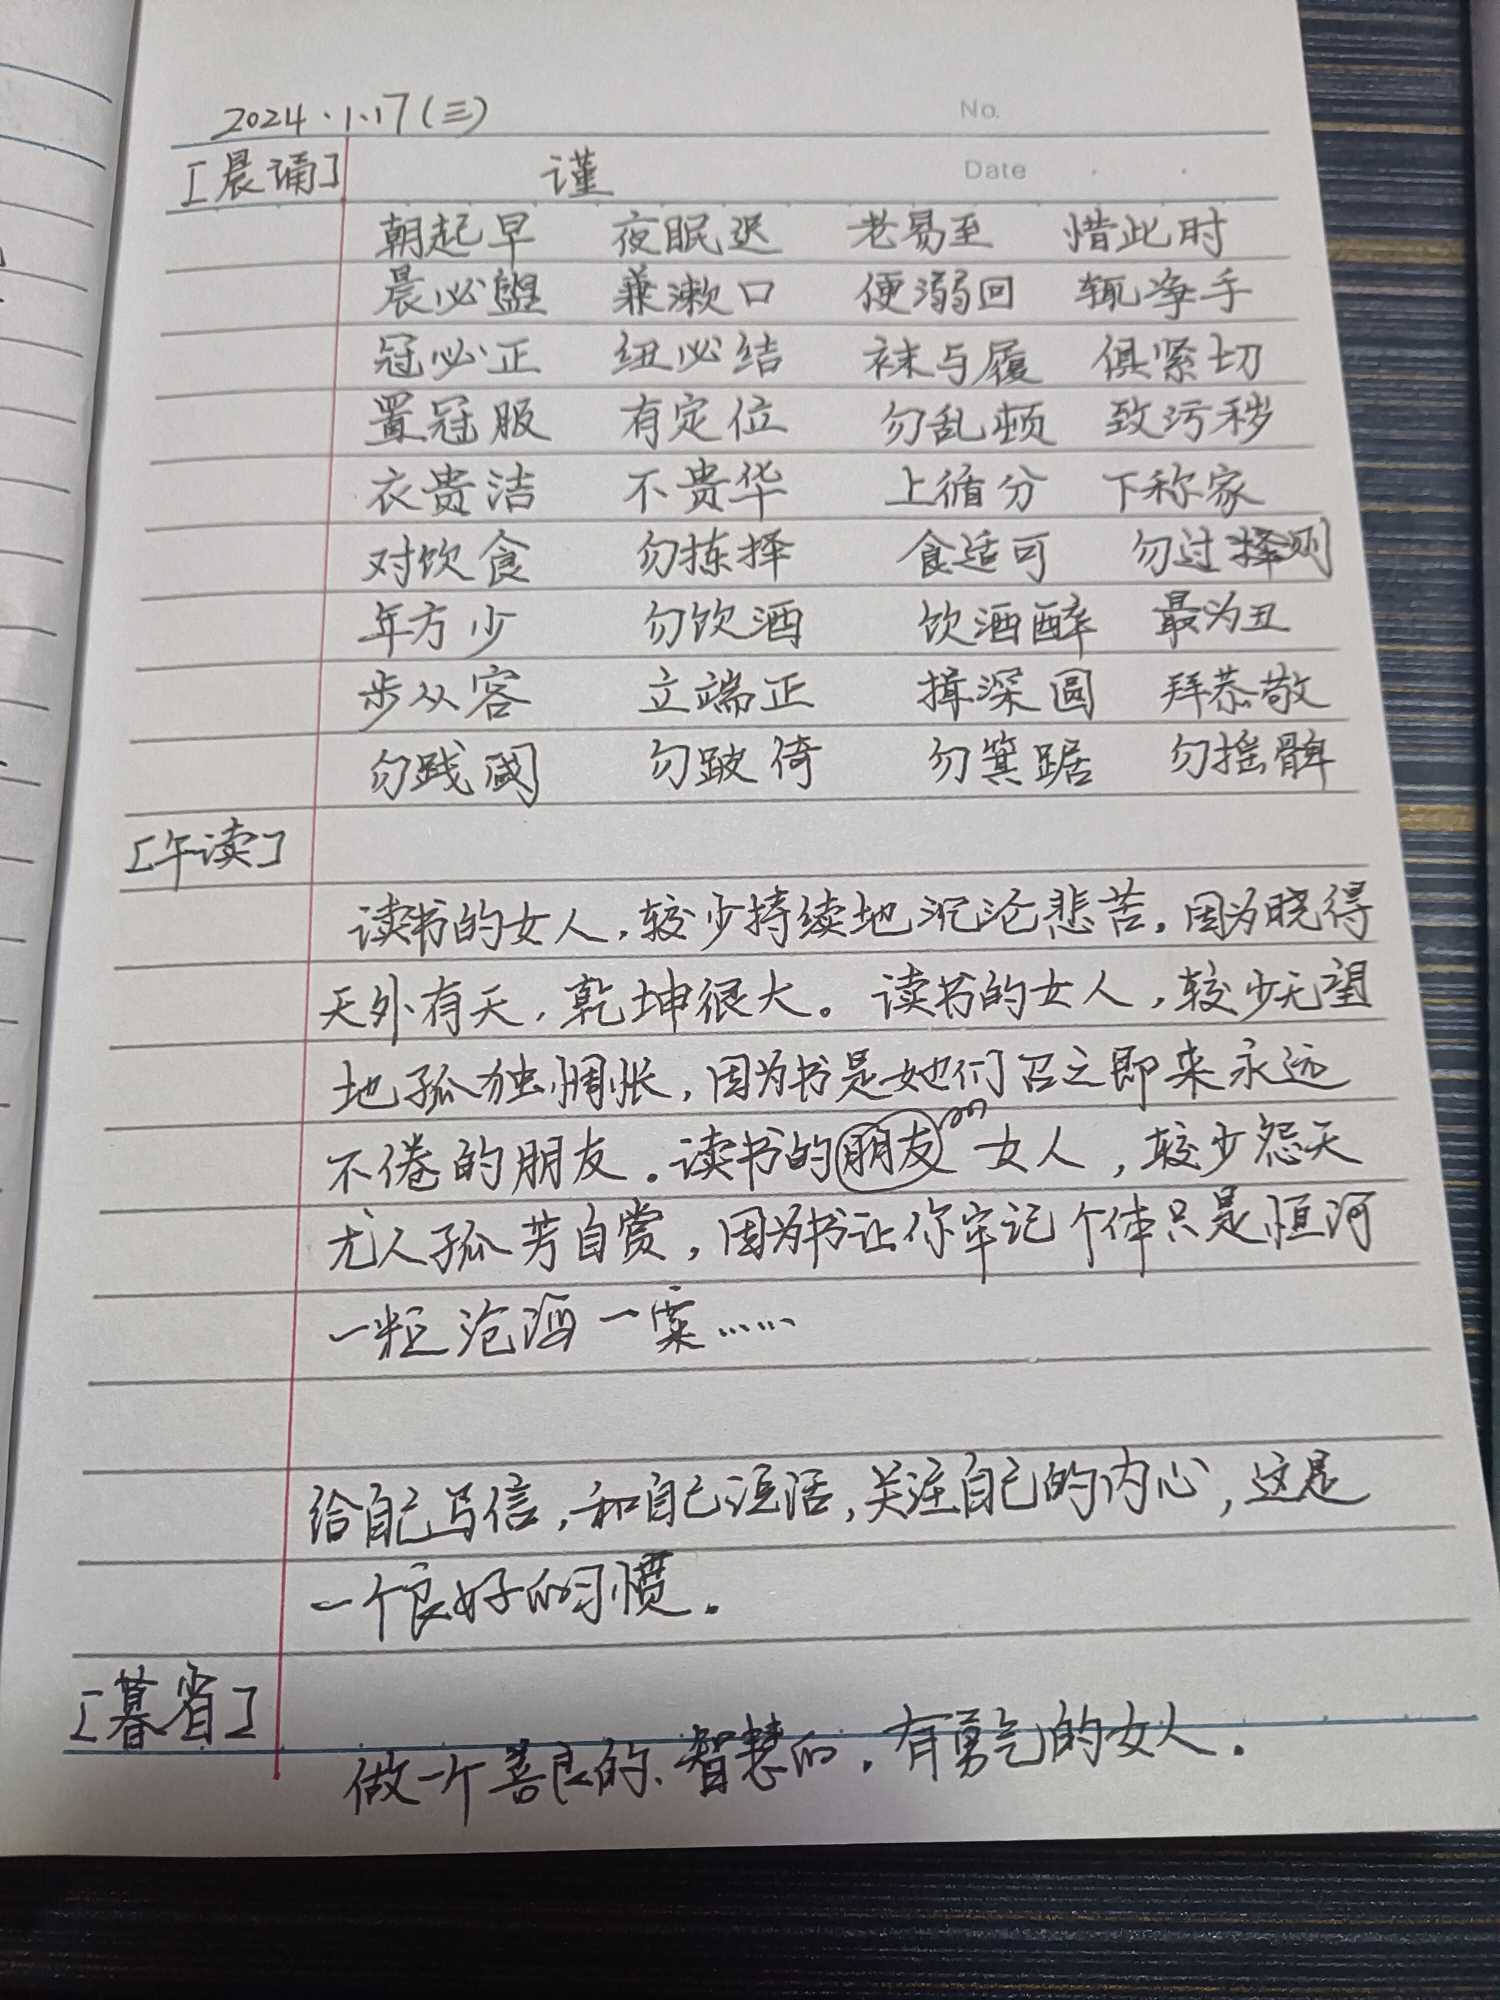 2024.1.17(三)
No.
[晨诵] 谨
Date
朝起早 夜眠迟 老易至 惜此时
晨必盥 兼漱口 便溺回 辄净手
冠必正 纽必结 袜与履 俱紧切
置冠服 有定位 勿乱顿 致污秽
衣贵洁 不贵华 上循分 下称家
对饮食 勿拣择 食适可 勿过则
年方少 勿饮酒 饮酒醉 最为丑
步从容 立端正 揖深圆 拜恭敬
勿践阈 勿跛倚 勿箕踞 勿摇髀
[午读]
读书的女人,较少持续地沉沦悲苦。因为晓得
天外有天,乾坤很大。读书的女人,较少无望
地孤独惆怅,因为书是她们召之即来永远
不倦的朋友。读书的朋友女人,较少怨天
尤人孤芳自赏,因为书让你牢记个体只是恒河
一粒沧海一粟……
给自己写信,和自己说话,关注自己的内心,这是
一个良好的习惯。
[暮省]
做一个善良的、智慧的、有勇气的女人。